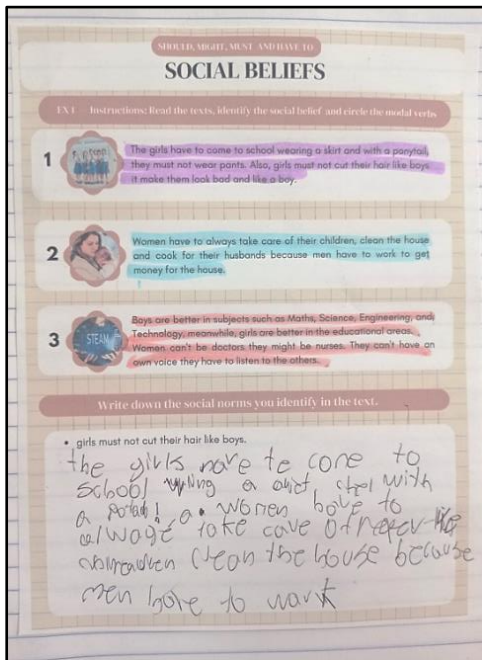 SHOULD, MIGHT, MUST AND HAVE TO
SOCIAL BELIEFS
EX 1 Instructions: Read the texts, identify the social belief and circle the modal verbs
1
The girls have to come to school wearing a skirt and with a ponytail,
they must not wear pants. Also, girls must not cut their hair like boys
it make them look bad and like a boy.
2
Women have to always take care of their children, clean the house
and cook for their husbands because men have to work to get
money for the house.
3
STEAM
Boys are better in subjects such as Maths, Science, Engineering, and
Technology, meanwhile, girls are better in the educational areas.
Women can't be doctors they might be nurses. They can't have an
own voice they have to listen to the others.
Write down the social norms you identify in the text.
• girls must not cut their hair like boys.
the girls have to come to
school a with
a women have to
take care of
clean the house because
men have to work